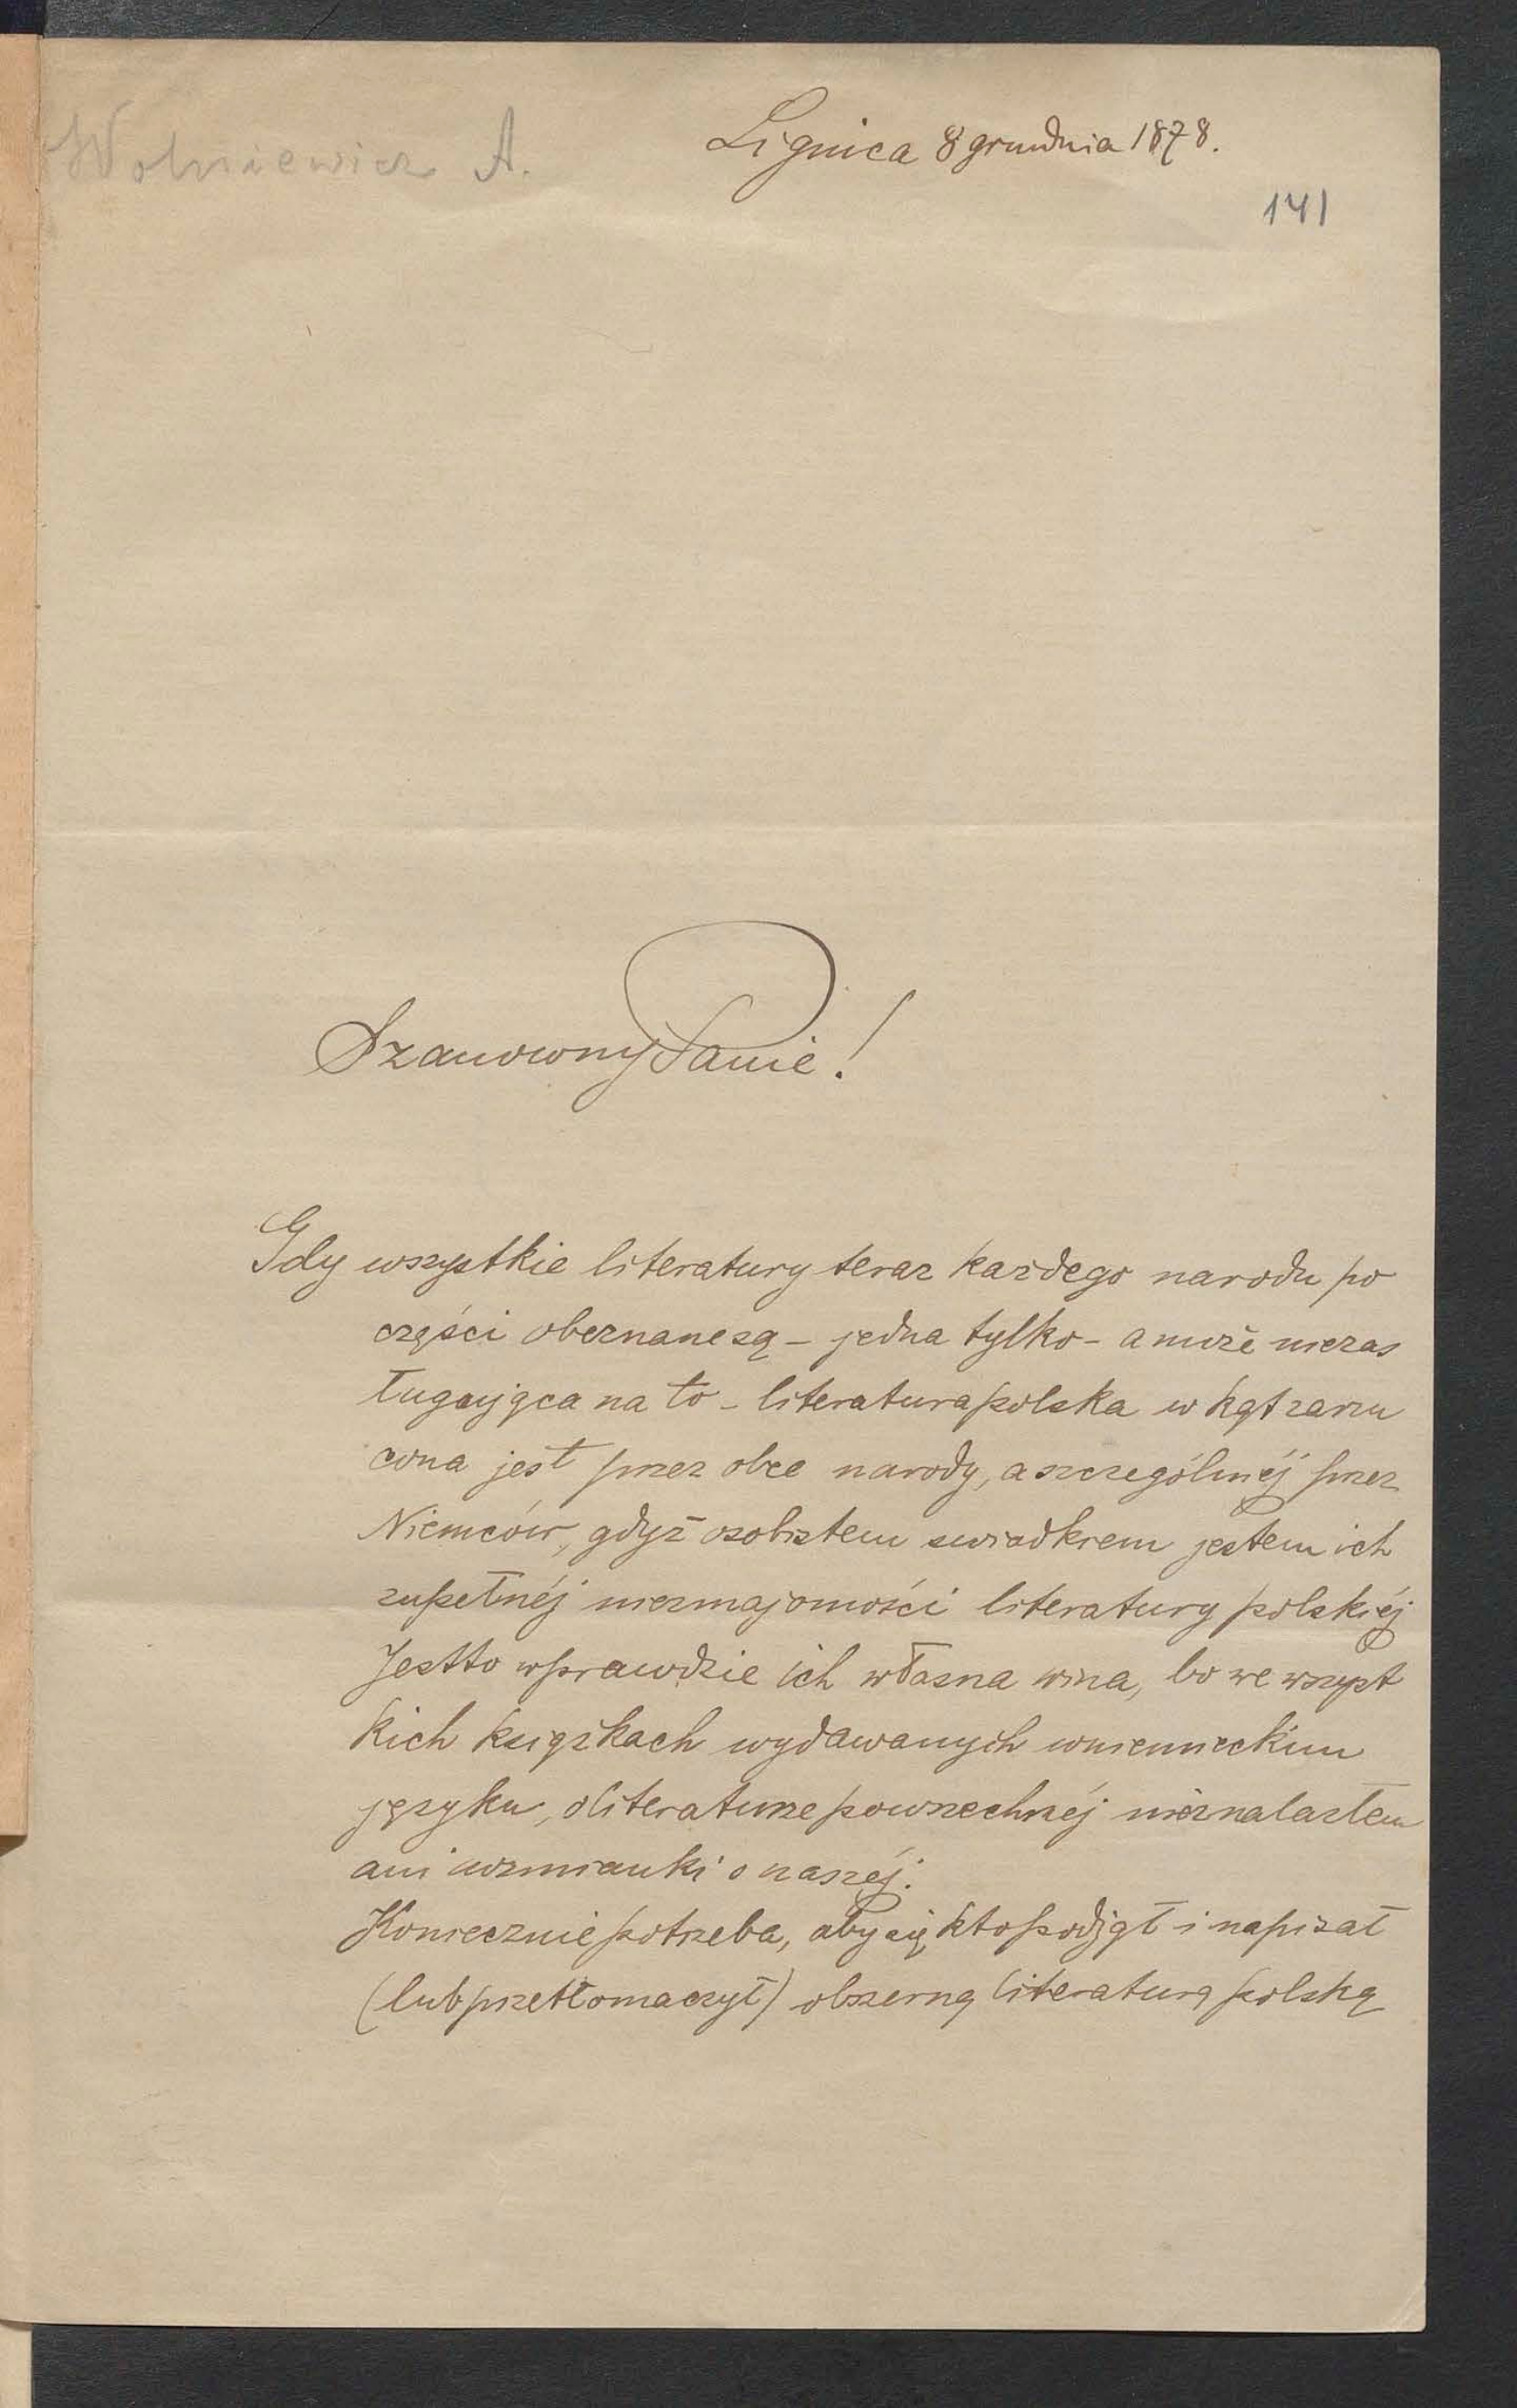 Wolniewicz A.
Lignica 8 grudnia 1878.
141
Szanowny Panie!
Gdy wszystkie literatury teraz każdego narodu po
części obeznane są – jedna tylko – a może niezas
ługująca na to – literatura polska w kąt zarzu
cona jest przez obce narody, a szczególniéj przez
Niemców, gdyż osobistem swiadkiem jestem ich
zupełnéj nieznajomości literatury polskiéj
Jestto wprawdzie ich własna wina, bo we wszyst
kich książkach wydawanych w niemieckim
języku, o literaturze powszechnéj nieznalazłem
ani wzmianki o naszéj.
Koniecznie potrzeba, aby się kto podjął i napisał
(lub przetłomaczył) obszerną literaturę polską